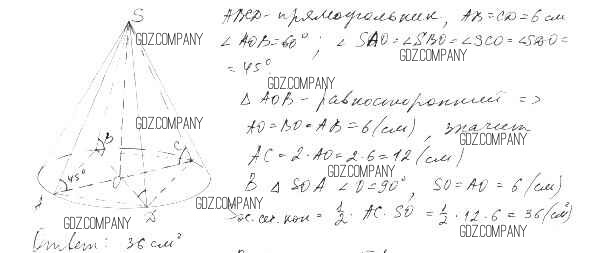 ABCD - прямоугольник, AB=CD=6 см
∠AOB=60°; ∠SAO=∠SBO=∠SCO=∠SDO=
=45°
△AOB - равносторонний =>
AO=BO=AB=6(см), значит
AC=2·AO=2·6=12(см)
В △SOA ∠O=90°, SO=AO=6(см)
Sос.сеч.кон=½·AC·SO=½·12·6=36(см²)
Ответ: 36 см²
S
B
C
45°
O
A
D
GDZ.COMPANY
GDZ.COMPANY
GDZ.COMPANY
GDZ.COMPANY
GDZ.COMPANY
GDZ.COMPANY
GDZ.COMPANY
GDZ.COMPANY
GDZ.COMPANY
GDZ.COMPANY